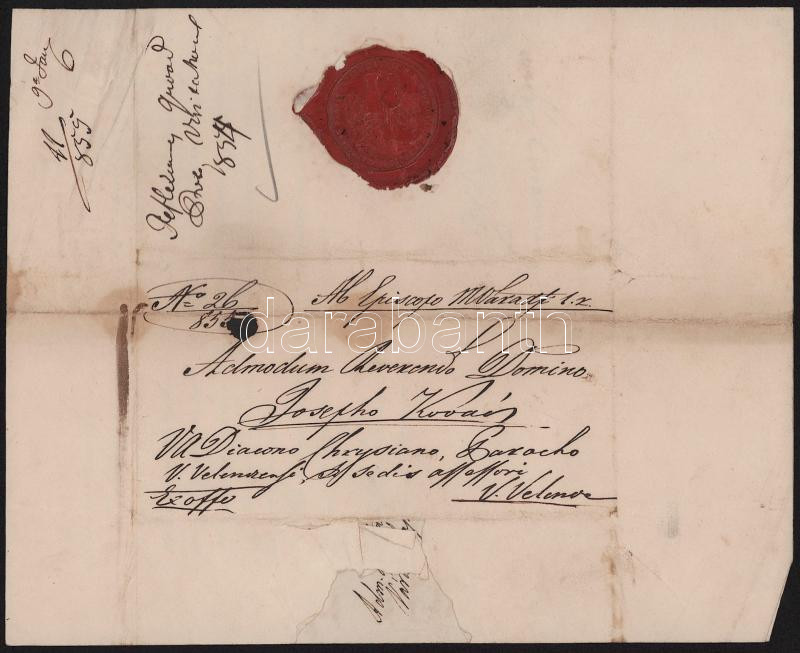 9a Jan
6
41
855
Reflexiones quoad
Visitationem
1854
No 26
855
Ab Episcopo MVaradi l. r.
darabanth
Admodum Reverendo Domino
Josepho Kovács
V A Diacono Chrysiano, Parocho
V. Velenczensi, SSedis assessori
Ex offo
V. Velencze
Adm.